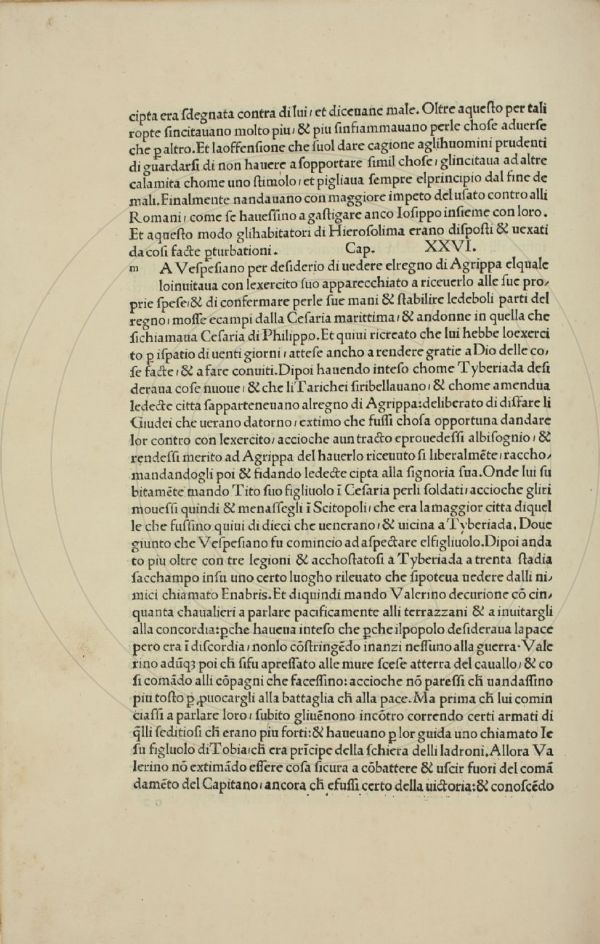 cipta era sdegnata contra di lui, et diceuane male. Oltre aquesto per tali
ropte sincitauano molto piu, & piu sinfiammauano perle chose aduerse
che ꝑ altro. Et laoffensione che suol dare cagione aglihuomini prudenti
di guardarsi di non hauere a sopportare simil chose, glincitaua ad altre
calamita chome uno stimolo, et pigliaua sempre elprincipio dal fine de
mali. Finalmente nandauano con maggiore impeto del usato contro alli
Romani, come se hauessino a gastigare anco Iosippo insieme con loro.
Et aquesto modo glihabitatori di Hierosolima erano disposti & uexati
da cosi facte ꝑturbationi. Cap. XXVI.
m A Vespesiano per desiderio di uedere elregno di Agrippa elquale
loinuitaua con lexercito suo apparecchiato a riceuerlo alle sue pro,
prie spese, & di confermare perle sue mani & stabilire ledeboli parti del
regno, mosse ecampi dalla Cesaria marittima, & andonne in quella che
sichiamaua Cesaria di Philippo. Et quiui ricreato che lui hebbe loexerci
to ꝑ ispatio di uenti giorni, attese ancho a rendere gratie a Dio delle co,
se facte, & a fare conuiti. Dipoi hauendo inteso chome Tyberiada desi
deraua cose nuoue, & che li Tarichei siribellauano, & chome amendua
ledecte citta sapparteneuano alregno di Agrippa: deliberato di disfare li
Giudei che uerano datorno, extimo che fussi chosa opportuna dandare
lor contro con lexercito, accioche aun tracto eprouedessi albisognio, &
rendessi merito ad Agrippa del hauerlo riceuuto si liberalmēte, raccho,
mandandogli poi & fidando ledecte cipta alla signoria sua. Onde lui su
bitamēte mando Tito suo figliuolo ī Cesaria perli soldati, accioche gliri
mouessi quindi & menassegli ī Scitopoli, che era lamaggior citta diquel
le che fussino quiui di dieci che uenerano, & uicina a Tyberiada. Doue
giunto che Vespesiano fu comincio ad aspectare elfigliuolo. Dipoi anda
to piu oltre con tre legioni & acchostatosi a Tyberiada a trenta stadia
sacchampo insu uno certo luogho rileuato che sipoteua uedere dalli ni,
mici chiamato Enabris. Et diquindi mando Valerino decurione cō cin,
quanta chaualieri a parlare pacificamente alli terrazzani & a inuitargli
alla concordia: ꝑche haueua inteso che ꝑche ilpopolo desideraua lapace
pero era ī discordia, nonlo cōstringēdo inanzi nessuno alla guerra. Vale
rino adūqꝫ poi ch̄ sifu apressato alle mure scese atterra del cauallo, & co
si comādo alli cōpagni che facessino: accioche nō paressi ch̄ uandassino
piu tosto ꝑ ꝓuocargli alla battaglia ch̄ alla pace. Ma prima ch̄ lui comin
ciassi a parlare loro, subito gliuēnono incōtro correndo certi armati di
q̄lli seditiosi ch̄ erano piu forti: & haueuano ꝑ lor guida uno chiamato Ie
su figluolo di Tobia, ch̄ era prīcipe della schiera delli ladroni. Allora Va
lerino nō extimādo essere cosa sicura a cōbattere & uscir fuori del comā
damēto del Capitano, ancora ch̄ efussi certo della uictoria: & conoscēdo